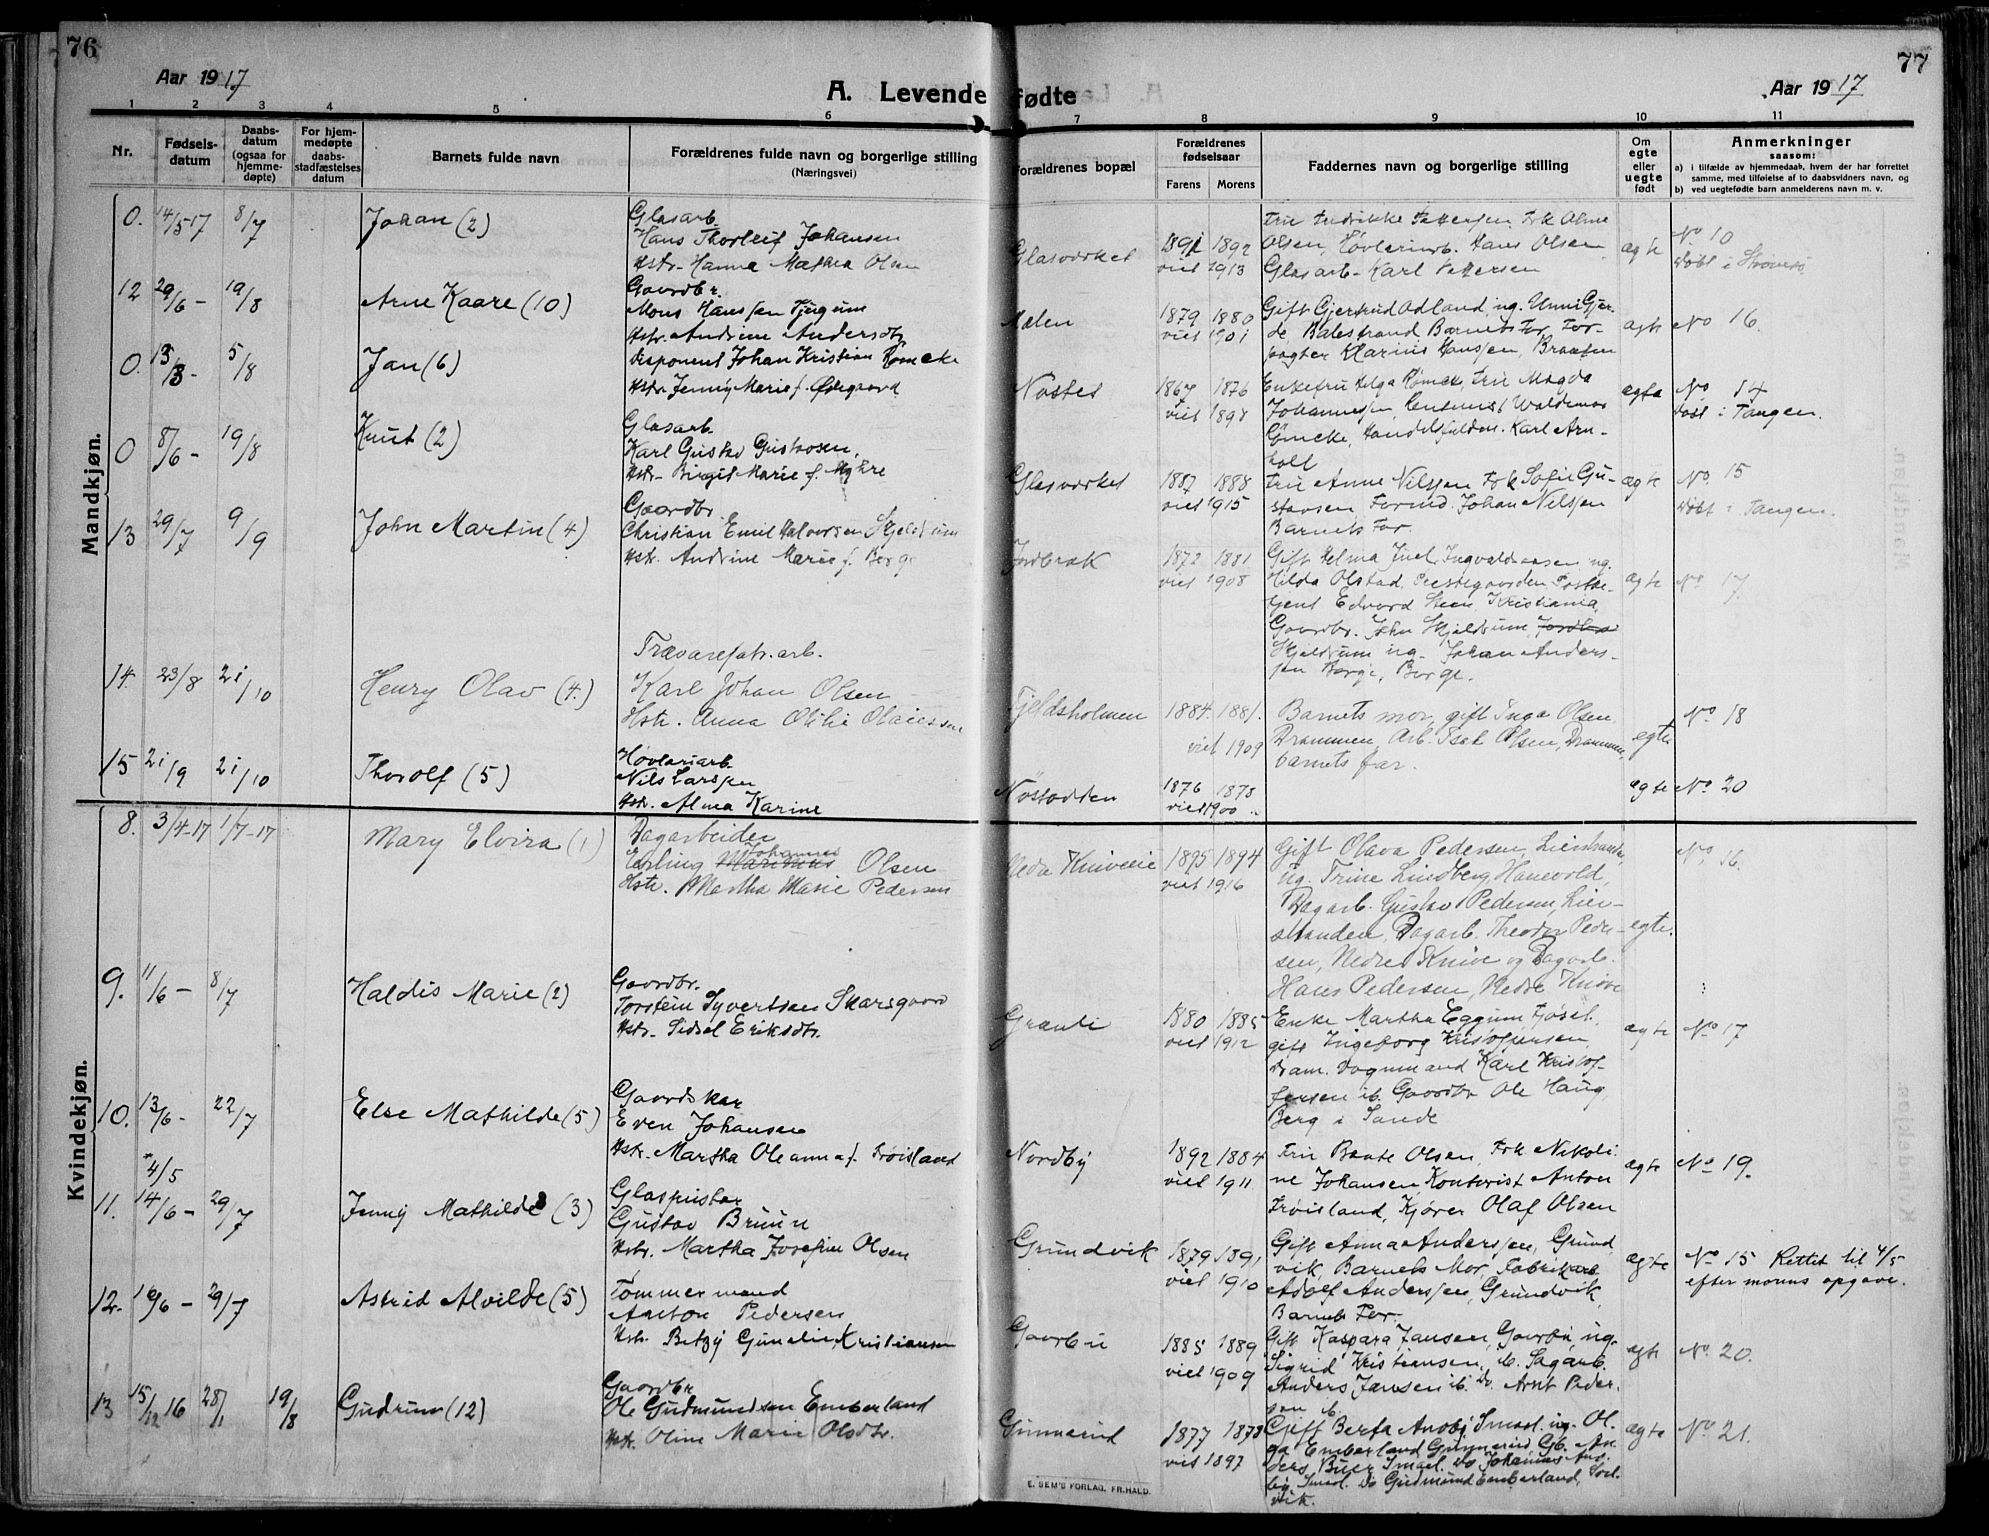 76
77
Aar 1917
A. Levende fødte
Aar 1917
1 2 3 4 5 6 7 8 9 10 11
Nr.
Fødsels-
datum
Daabs-
datum
(ogsaa for
hjemme-
døpte)
For hjem-
medøpte
daabs-
stadfæstelses
datum
Barnets fulde navn
Forældrenes fulde navn og borgerlige stilling
(Næringsvei)
Forældrenes bopæl
Forældrenes
fødselsaar
Farens Morens
Faddernes navn og borgerlige stilling
Om
egte
eller
uegte
født
Anmerkninger
saasom:
a) i tilfælde av hjemmedaab, hvem der har forrettet
samme, med tilføielse af to daabsvidners navn, og
b) ved uegtefødte barn anmelderens navn m. v.
Mandkjøn.
0. 14/5 17 8/7 Johan (2)
Glasarb.
Hans Thorleif Johansen
Hstr. Hanna Mathea Olsen
Glasværket
1891 1892
viet 1913
Olsen, Høvleriarb. Hans Olsen
Glasarb. Karl Pettersen
ægte
No 10
Døbt i Strømsø
12 29/6 - 19/8 Arne Kaare (10)
Gaardbr.
Mons Hanssen
Hstr. Andrine Andersdtr
1879 1880
viet 1901
Gift Gjertrud Odland, ug. Unni Gjer-
de, Balestrand Barnets Far, For-
pagter Marius Hanssen,
ægte
No 16.
0. 5/8 Jan (6)
Disponent Johan Kristian Rømcke
Hstr. Jenny Marie f. Ødegaard
Nøstet
1867 1876
viet 1898
Enkefru Helga Rømcke, Fru Magda
Johannessen, Waldemar
Rømcke, Karl Arn-
ægte
No 14
Døbt i Tangen.
0 8/6 - 19/8 Knut (2)
Glasarb.
Karl Gustav Gustavsen,
Hstr. Birgit Marie f. Myhre
Glasværket
1887 1888
viet 1915
Fru Anne Nilssen Frk Sofie Gu-
stavsen, Formd. Johan Nilssen
Barnets Far.
ægte
No. 15
Døbt i Tangen.
13 29/7 9/9 John Martin (4)
Gaardbr.
Christian Emil Halvorsen Skjeldrum
Hstr. Andrine Marie f. Berge
Jordbræk
1872 1881
viet 1908
Gift Helma Juel Ingvaldsen ug.
Hilda Olstad, Prestegaarden
Edvard Steen Kristiania,
Gaardbr. John Skjeldrum,
Skjeldrum ug. Johan Anders-
sen Berge, Berge.
ægte
No 17.
14. 23/8 21/10 Henry Olav (4.)
Trævarefabr.arb.
Karl Johan Olsen
Hstr. Anna Otilie Olaussen
Fjeldsholmen
1884. 1881.
viet 1909
Barnets mor, gift Inga Olsen
Drammen, Arb. Isak Olsen, Drammen,
barnets far.
egte
No 18
15 21/9 21/10 Thorolf (5)
Høvleriarb.
Nils Larssen
Hstr. Alma Karine
Nøstodden
1876 1878
viet 1900
ægte No 20
Kvindekjøn.
8. 3/4-17 1/7-17 Mary Elvira (1)
Dagarbeider
Johannes
Erling Olsen
Hstr. Martha Marie Pedersen
Nedre Knive
1895 1894
viet 1916
Gift Olava Pedersen, Lierstranden,
ug. Trine Lindberg, Hanevold,
Dagarb. Gustav Pedersen, Lier-
stranden, Dagarb. Theodor Peder-
sen, Nedre Knive og Dagarb.
Hans Pedersen, Nedre Knive
egte.
No. 16.
9. 11/6 - 8/7 Haldis Marie (2)
Gaardbr.
Torstein Syvertsen Skarsgaard
Hstr. Sidsel Eriksdtr.
Granli
1880 1885
viet 1912
Enke Martha Eggum Fosel.
gift Ingeborg Kristoffersen,
Dram. Dagmand Karl Kristof-
fersen ib. Gaardbr Ole Haug
Berg i Sande
ægte
No 17
10. 13/6 - 22/7 Else Mathilde (5)
Gaardskar
Even Johansen
Hstr. Martha Oleanna f. Frøisland
Nordby
1892 1884
viet 1911
Fru Beate Olsen, Frk Nikoli-
ne Johansen, Kontorist Anton
Frøisland, Kjører Olaf Olsen
ægte
No 19.
* 4/5
11. 14/6 - 29/7 Jenny Mathilde (3)
Glaspuster
Gustav Bruun
Hstr. Martha Josefine Olsen
Grundvik
1879 1891
viet 1910
Gift Anna Anderssen, Grund
vik Barnets Mor, Fabrikarb
Adolf Anderssen, Grundvik,
Barnets Far.
ægte
No 15 Rettet til 4/5
efter morens opgave.
12. 16/6 - 29/7 Astrid Alvilde (5)
Tømmermand
Anton Pedersen
Hstr. Betzy Gunelie Kristiansen
Gaarbu
1885 1889
viet 1909
Gift Kaspara Jansen, Gaarbu, ug.
Sigrid Kristiansen, ib. Sagarb.
Anders Jansen ib. Do. Arnt Peder-
sen ib.
ægte
No. 20.
13 15/12 16 28/1 19/8 Gudrun (12)
Gaardbr
Ole Gudmundsen Emberland
Hstr. Oline Marie Olsdtr.
Gunnerud
1877 1873
viet 1897
Gift Berta Aasby Smael. ug. Ol-
ga Emberland Gunnerud Gb. An-
ders Buer Smael. Do Johannes Aas-
by, Smael. Do Gudmund Emberland, Sol-
vik.
ægte
No. 21.
E. SEM'S FORLAG, FR.HALD.